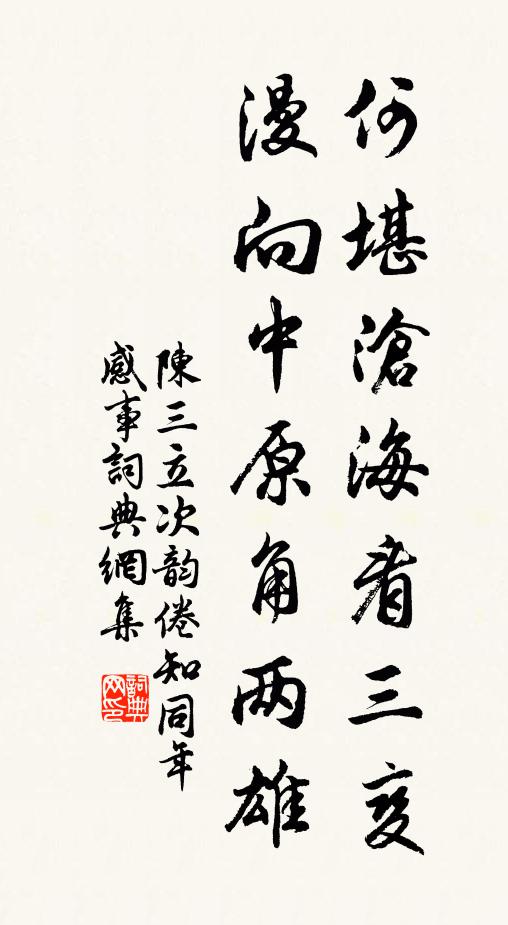 何堪滄海看三变
漫向中原角两雄
陳三立次韵倦知同年
感事詞典網集
詞典网印